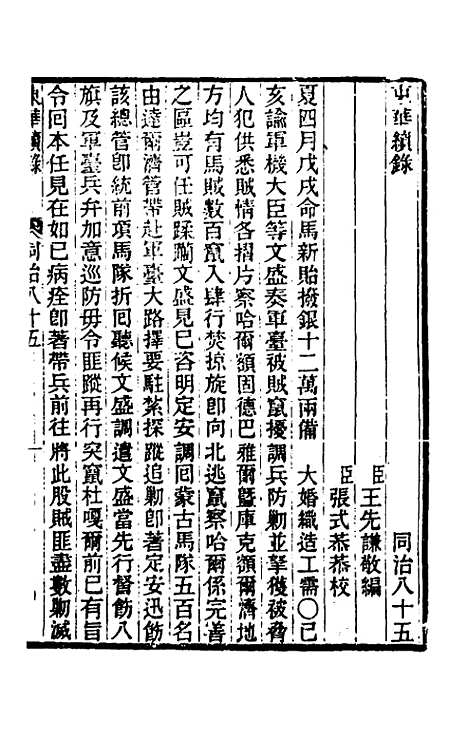 東華續錄 同治八十五
臣王先謙敬編
臣張式恭恭校
夏四月戊戌命馬新貽撥銀十二萬兩備 大婚織造工需〇己
亥諭軍機大臣等文盛奏軍臺被賊竄擾調兵防勦並拏獲被脅
人犯供悉賊情各摺片察哈爾額固德巴雅爾曁庫克額爾濟地
方均有馬賊數百竄入肆行焚掠旋卽向北逃竄察哈爾係完善
之區豈可任賊蹂躪文盛見已咨明定安調回蒙古馬隊五百名
由達爾濟管帶赴軍臺大路擇要駐紮探蹤追勦卽著定安迅飭
該總管卽統前項馬隊折回聽候文盛調遣文盛當先行督飭八
旗及軍臺兵弁加意巡防毋令匪蹤再行突竄杜嘎爾前已有旨
令回本任見在如已病痊卽著帶兵前往將此股賊匪盡數勦滅
東華續錄 同治八十五 一